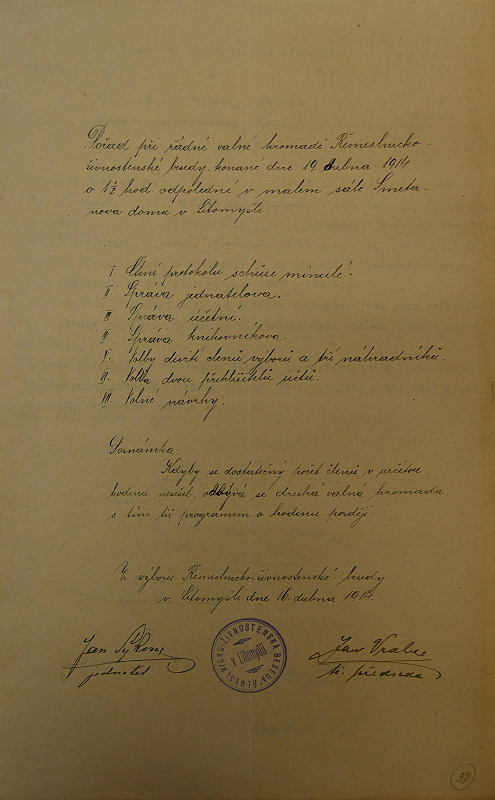 Pořad při řádné valné hromadě Řemeslnicko-
živnostenské besedy, konané dne 19. dubna 1914
o 1½ hod odpoledne v malém sále Smeta-
nova domu v Litomyšli.
I Čtení protokolu schůze minulé.
II Správa jednatelova.
III Správa účetní.
IV. Správa knihovníkova.
V. Volby devíti členů výboru a tří náhradníků.
VI. Volba dvou přehlížitelů účtů.
VII Volné návrhy.
Poznámka:
Kdyby se dostatečný počet členů v určitou
hodinu nesešel, odbývá se druhá valná hromada
s tím též programem o hodinu později.
Z výboru Řemeslnicko-živnostenské besedy
v Litomyšli dne 16. dubna 1914.
Jan Sýkora
jednatel
ŘEMESLNICKO-ŽIVNOSTENSKÁ BESEDA
v Litomyšli
Jan Vrabec
předseda
37